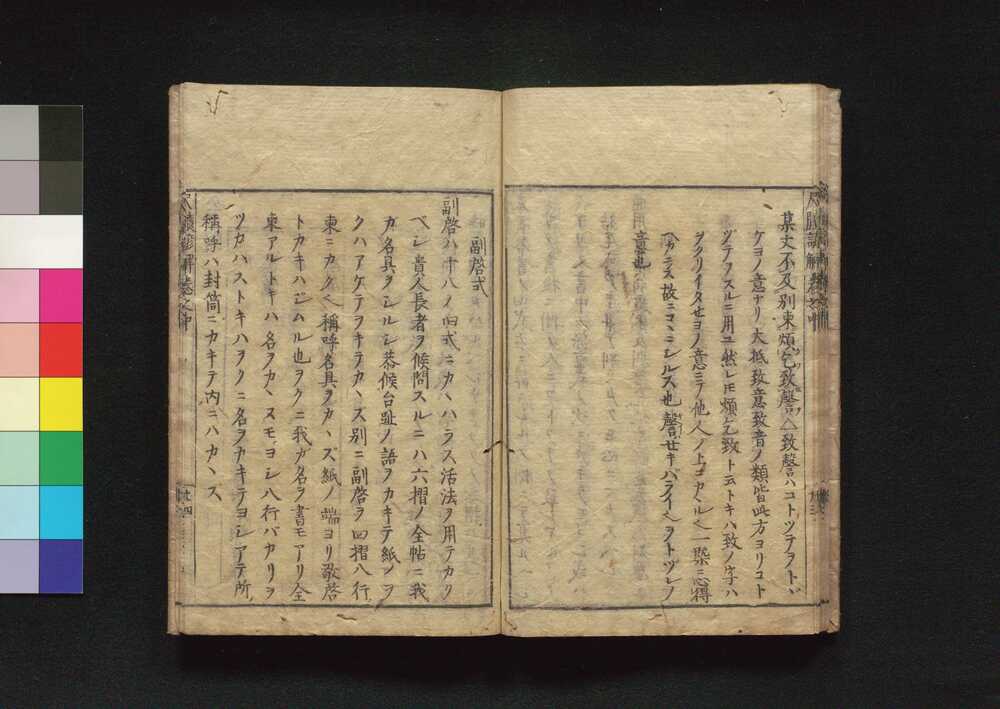 尺牘諺解卷之中
某丈不及別柬煩乞致謦△致謦ハコトツテヲトヾ
ケヨノ意ナリ大抵致意致音ノ類皆此方ヨリコト
ヅテヲスルニ用ユ然レ𪜈煩乞致ト云トキハ致ノ字ハ
ヲクリイタセヨノ意ニテ他人ノ上ニカヽル〱一槩ニ心得
ベカラス故ニコヽニシルス也謦
意也
廿三
副啓式
副啓ハ十八ノ曰式ニカヽハラス活法ヲ用テカク
ベシ貴人長者ヲ候問スルニハ六摺ノ全帖ニ我
ガ名具ヲシルシ恭候台趾ノ語ヲカキテ紙ノヲ
クハアケテヲキテカヽス別ニ副啓ヲ四摺八行
柬ニカク〱稱呼名具ヲカヽズ紙ノ端ヨリ敬啓
トカキハジムル也ヲクニ我ガ名ヲ書モアリ全
柬アルトキハ名ヲカヽヌモヨシ八行バカリヲ
ツカハストキハヲクニ名ヲカキテヨシアテ所
稱呼ハ封筒ニカキテ内ニハカヽス
尺牘諺解卷之中
廿四